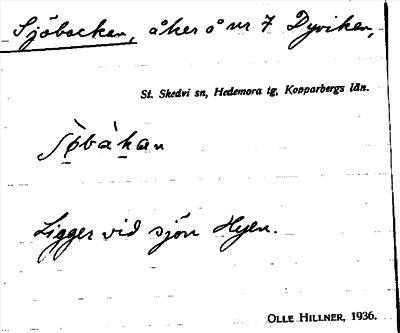 Sjöbacken, åker å nr 7 Dyviken,
St. Skedvi sn, Hedemora tg, Kopparbergs län.
Ligger vid sjön Hyen.
OLLE HILLNER, 1936.